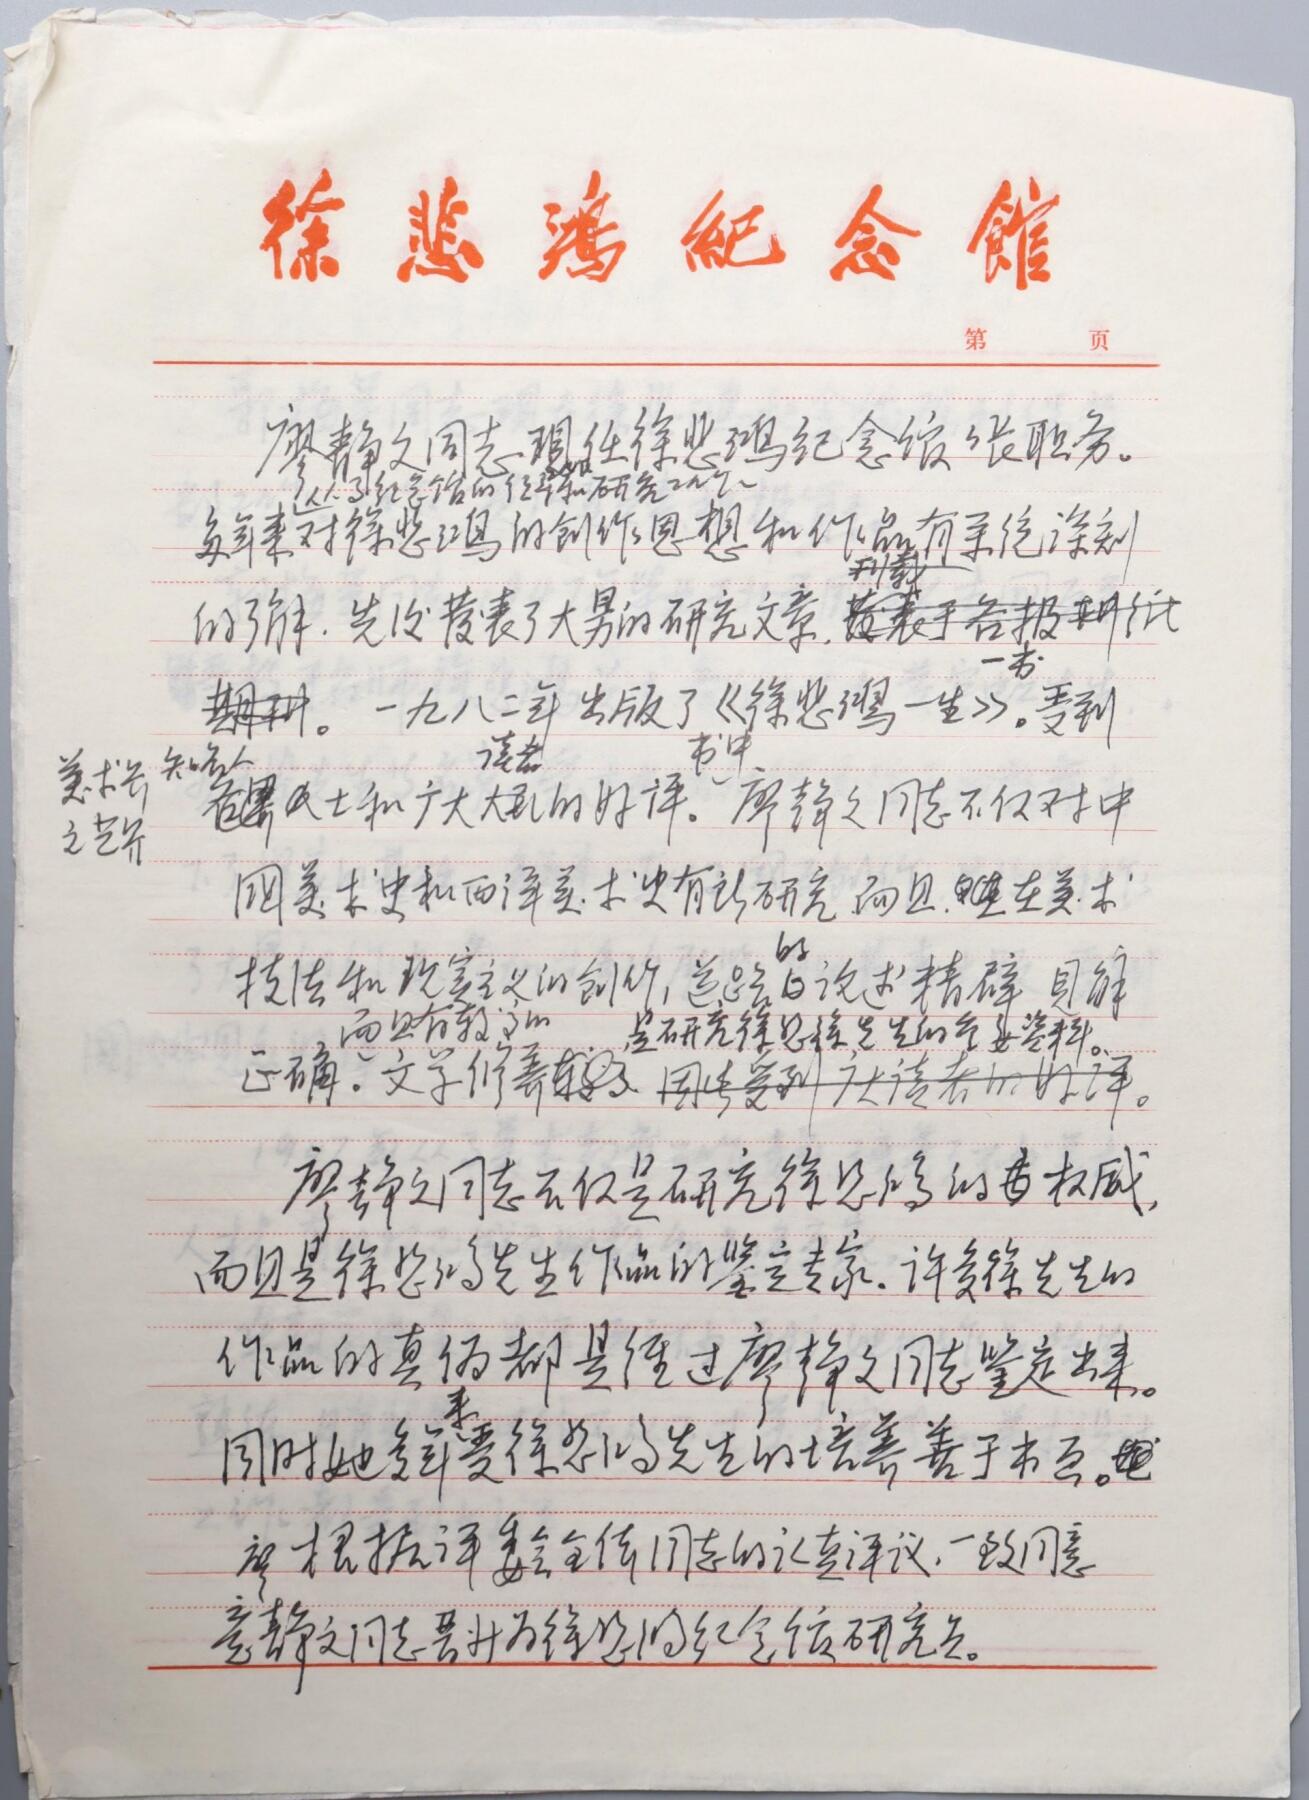 徐悲鸿纪念馆
第 页
廖静文同志现任徐悲鸿纪念馆馆长职务。
从事纪念馆的领导和研究工作
多年来对徐悲鸿的创作思想和作品有系统深刻
刊载
的了解.先后发表了大量的研究文章.发表于各报期纸
一书
期刊。一九八二年出版了《徐悲鸿一生》。受到
读者 书中
美术界 知名人
文艺界
各界人士和广大的好评。廖静文同志不仅对中
国美术史和西洋美术史有所研究.而且在美术
的
技法和现实主义的创作,道路的论述精辟 见解
而且有较高的 是研究徐悲鸿先生的重要资料。
正确。文学修养较高 因此受到广大读者的好评。
廖静文同志不仅是研究徐悲鸿的权威,
而且是徐悲鸿先生作品的鉴定专家.许多徐先生的
作品的真伪都是经过廖静文同志鉴定出来。
来
同时她多年受徐悲鸿先生的培养善于书画。
廖根据评委会全体同志的认真评议.一致同意
廖静文同志晋升为徐悲鸿纪念馆研究员。